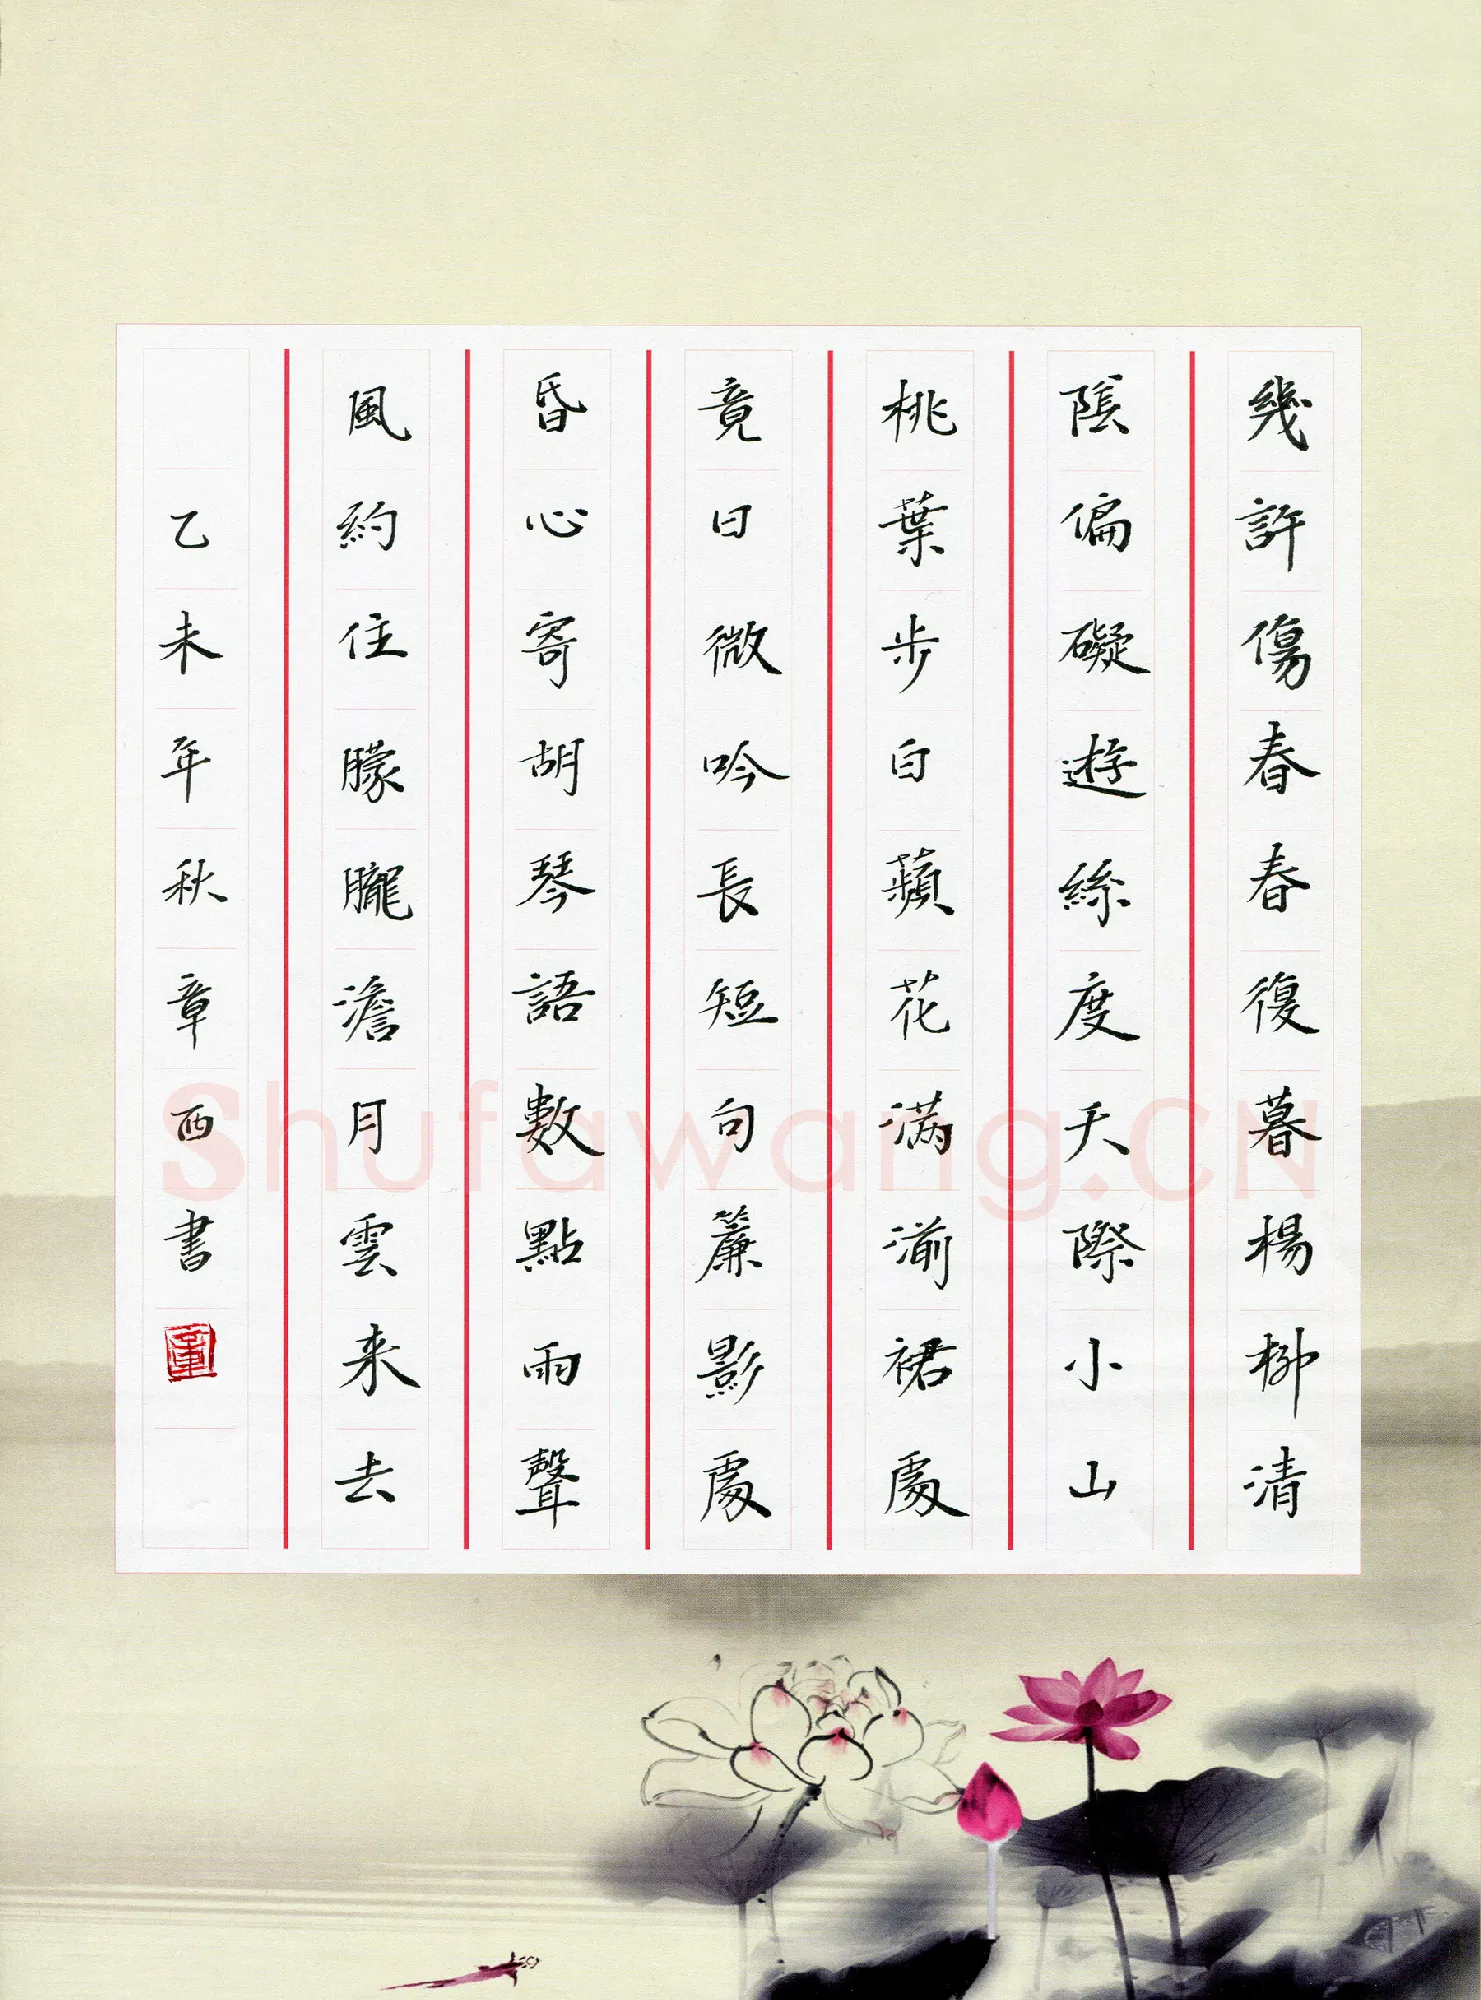 幾許傷春春復暮楊柳清
陰偏礙遊絲度天際小山
桃葉步白蘋花满湔裙處
竟日微吟長短句簾影處
昏心寄胡琴語數點雨聲
風約住朦朧澹月雲来去
乙未年秋章西書
Shufawang.CN